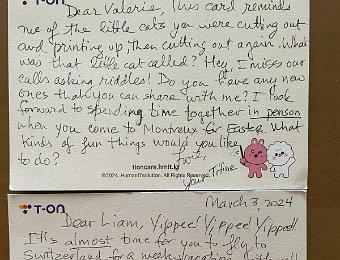 T-ON
Dear Valerie, This card reminds
me of the little cats you were cutting out
and printing up, then cutting out again. What
was that little cat called? Hey, I miss our
calls asking riddles! Do you have any new
ones that you can share with me? I look
forward to spending time together in person
when you come to Montreux for Easter. What
kinds of fun things would you like
to do?
Love,
your
tioncare.hmit.kr
©2024. HumanITsolution. All Rights Reserved.
T-ON
March 3, 2024
Dear Liam, Yippee! Yippee! Yippee!!
It's almost time for you to fly to
Switzerland for a week vacation with